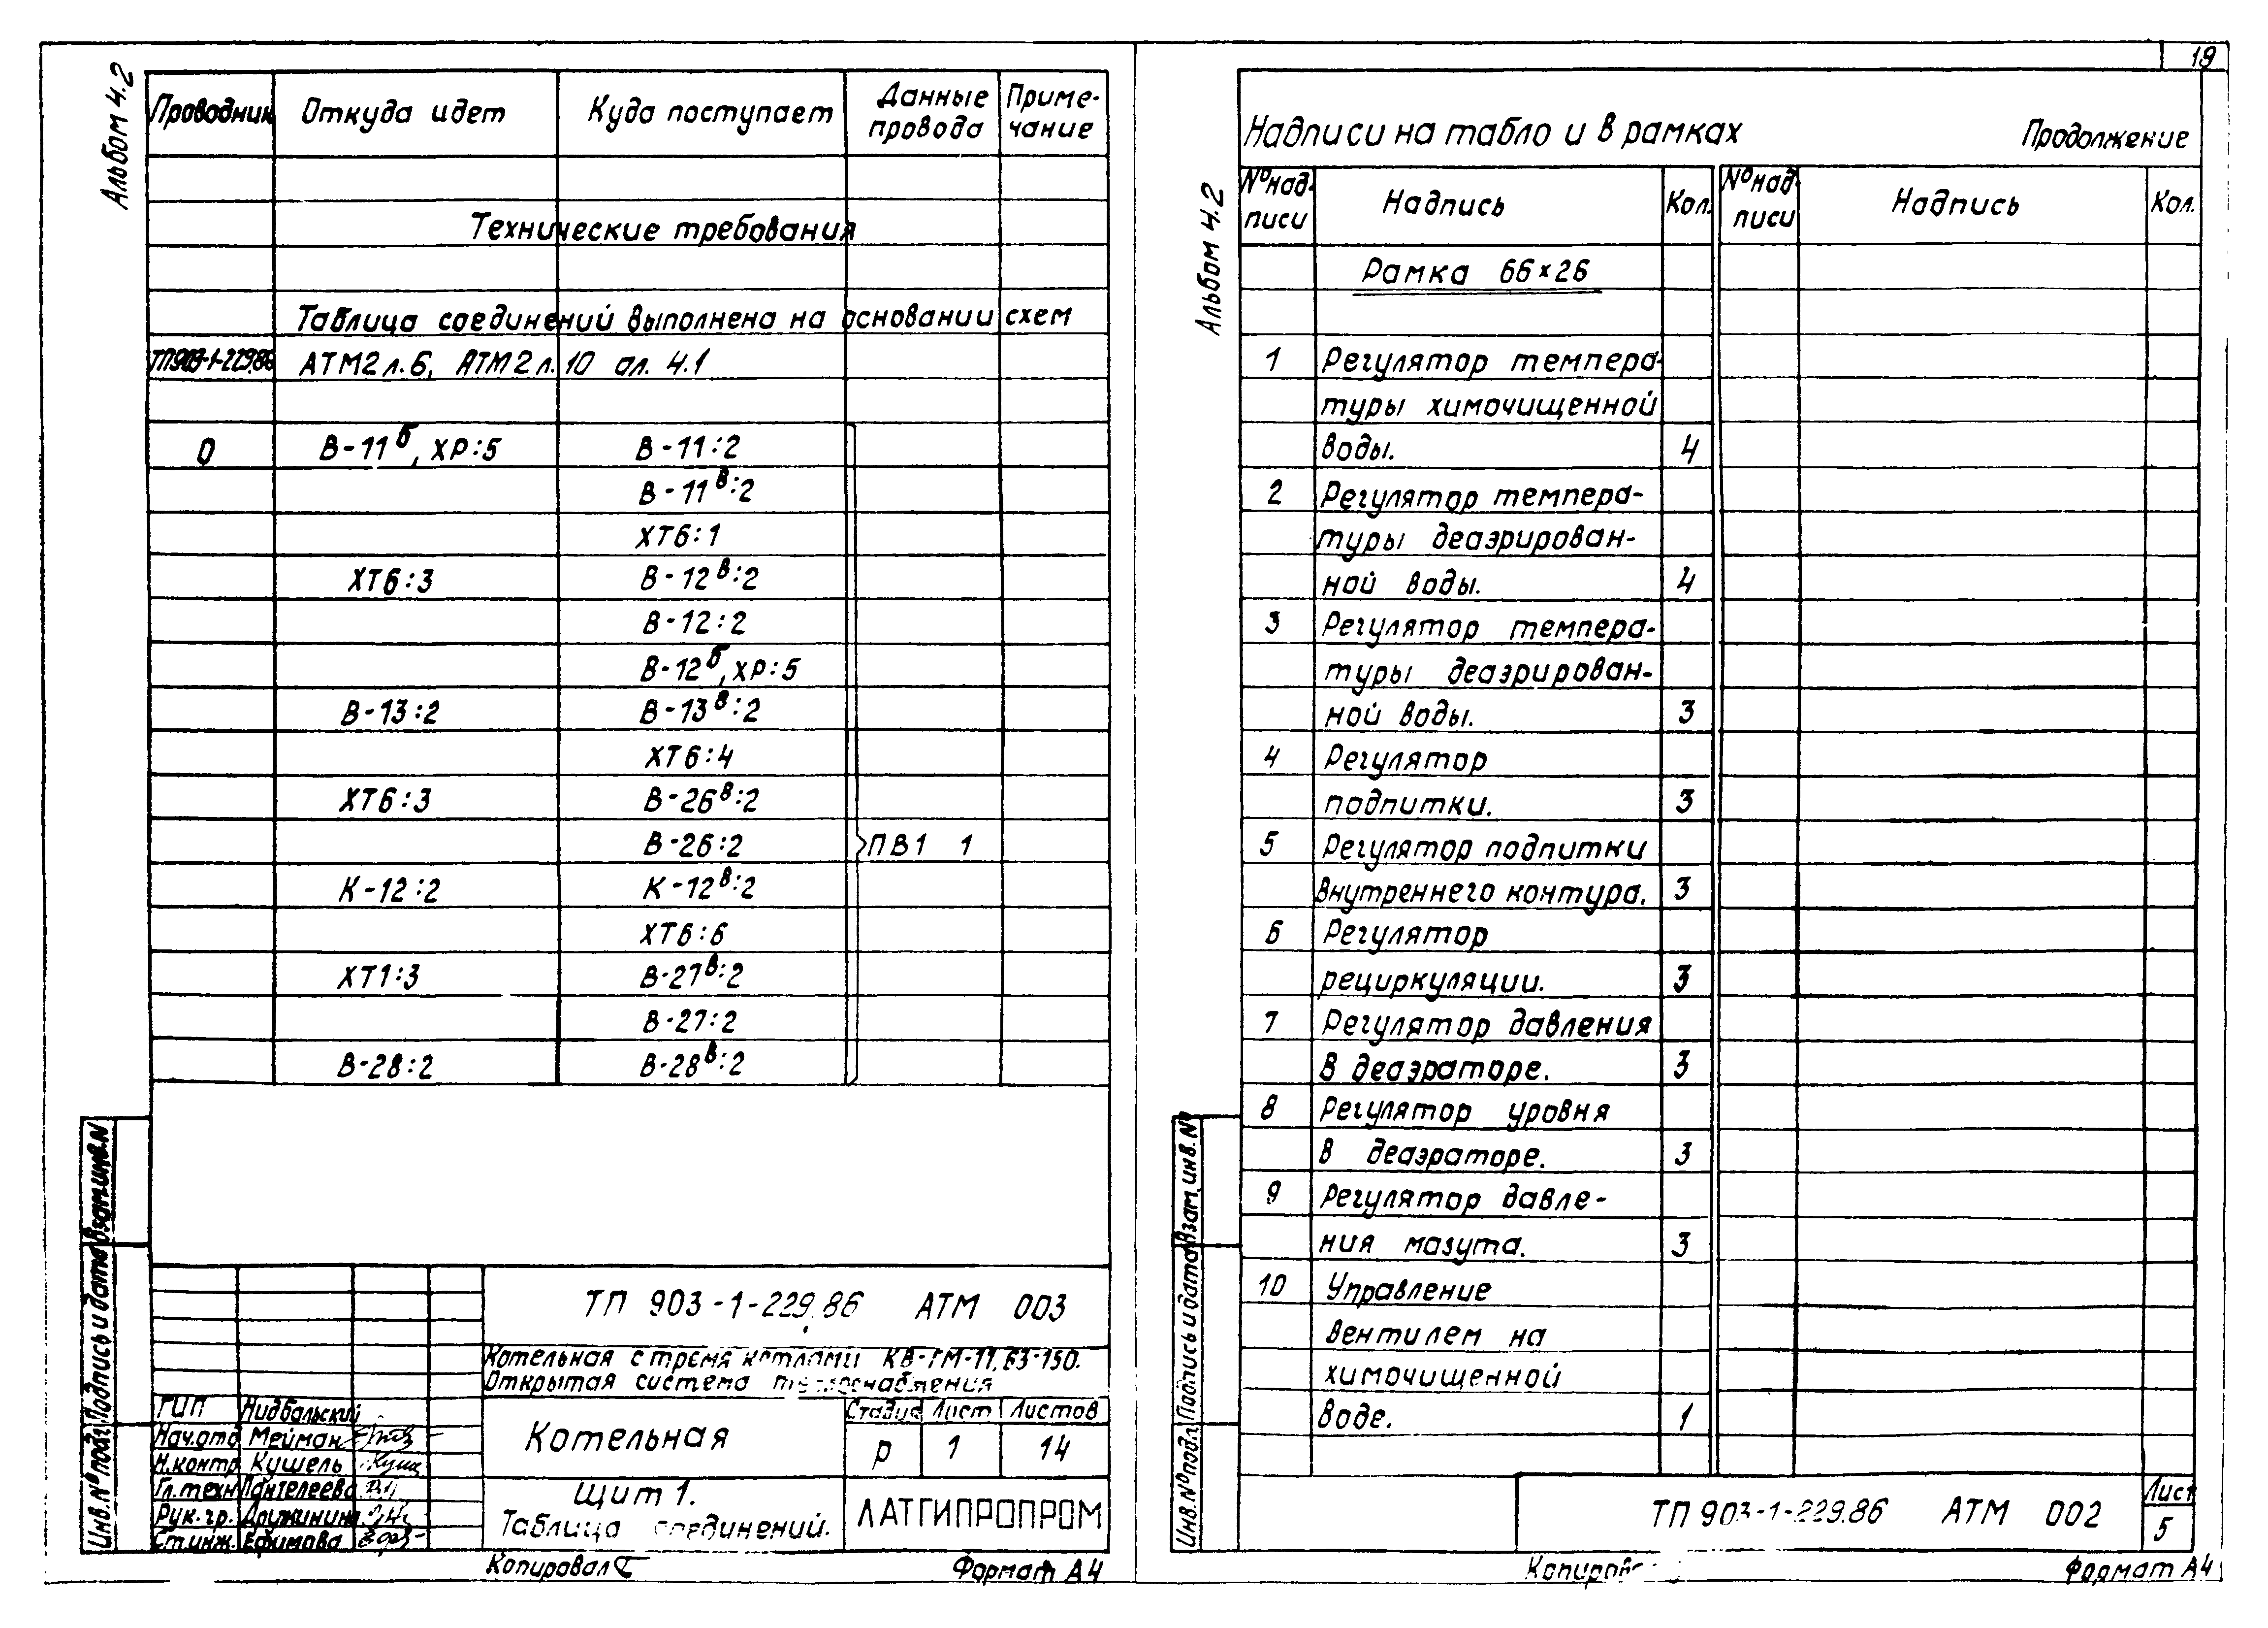 19
Альбом 4.2
Проводник Откуда идет Куда поступает Данные провода Приме-чание
Технические требования
Таблица соединений выполнена на основании схем
ТП903-1-229.86 АТМ2 л.6, АТМ2 л.10 ал. 4.1
0 В-11б, ХР:5 В-11:2
В-11в:2
ХТ6:1
ХТ6:3 В-12в:2
В-12:2
В-12б, ХР:5
В-13:2 В-13в:2
ХТ6:4
ХТ6:3 В-26в:2
В-26:2 ПВ1 1
К-12:2 К-12в:2
ХТ6:6
ХТ1:3 В-27в:2
В-27:2
В-28:2 В-28в:2
Взам.инв.N
Подпись и дата
Инв.№ подл
ТП 903-1-229.86 АТМ 003
Котельная с тремя котлами КВ-ГМ-11,63-150.
Открытая система теплоснабжения
ГИП Нидбальский
Нач.отд Мейман
Н.контр Кушель
Гл.техн Пантелеева
Рук.гр. Дружинина
Ст.инж. Ефимова
Котельная
Стадия Лист Листов
Р 1 14
Щит 1.
Таблица соединений.
ЛАТГИПРОПРОМ
Копировал
Формат А4
Альбом 4.2
Надписи на табло и в рамках Продолжение
№ над-писи Надпись Кол. № над-писи Надпись Кол.
Рамка 66×26
1 Регулятор темпера-
туры химочищенной
воды. 4
2 Регулятор темпера-
туры деаэрирован-
ной воды. 4
3 Регулятор темпера-
туры деаэрирован-
ной воды. 3
4 Регулятор
подпитки. 3
5 Регулятор подпитки
внутреннего контура. 3
6 Регулятор
рециркуляции. 3
7 Регулятор давления
в деаэраторе. 3
8 Регулятор уровня
в деаэраторе. 3
9 Регулятор давле-
ния мазута. 3
10 Управление
вентилем на
химочищенной
воде. 1
Взам.инв.№
Подпись и дата
Инв.№ подл
ТП 903-1-229.86 АТМ 002
Лист
5
Формат А4